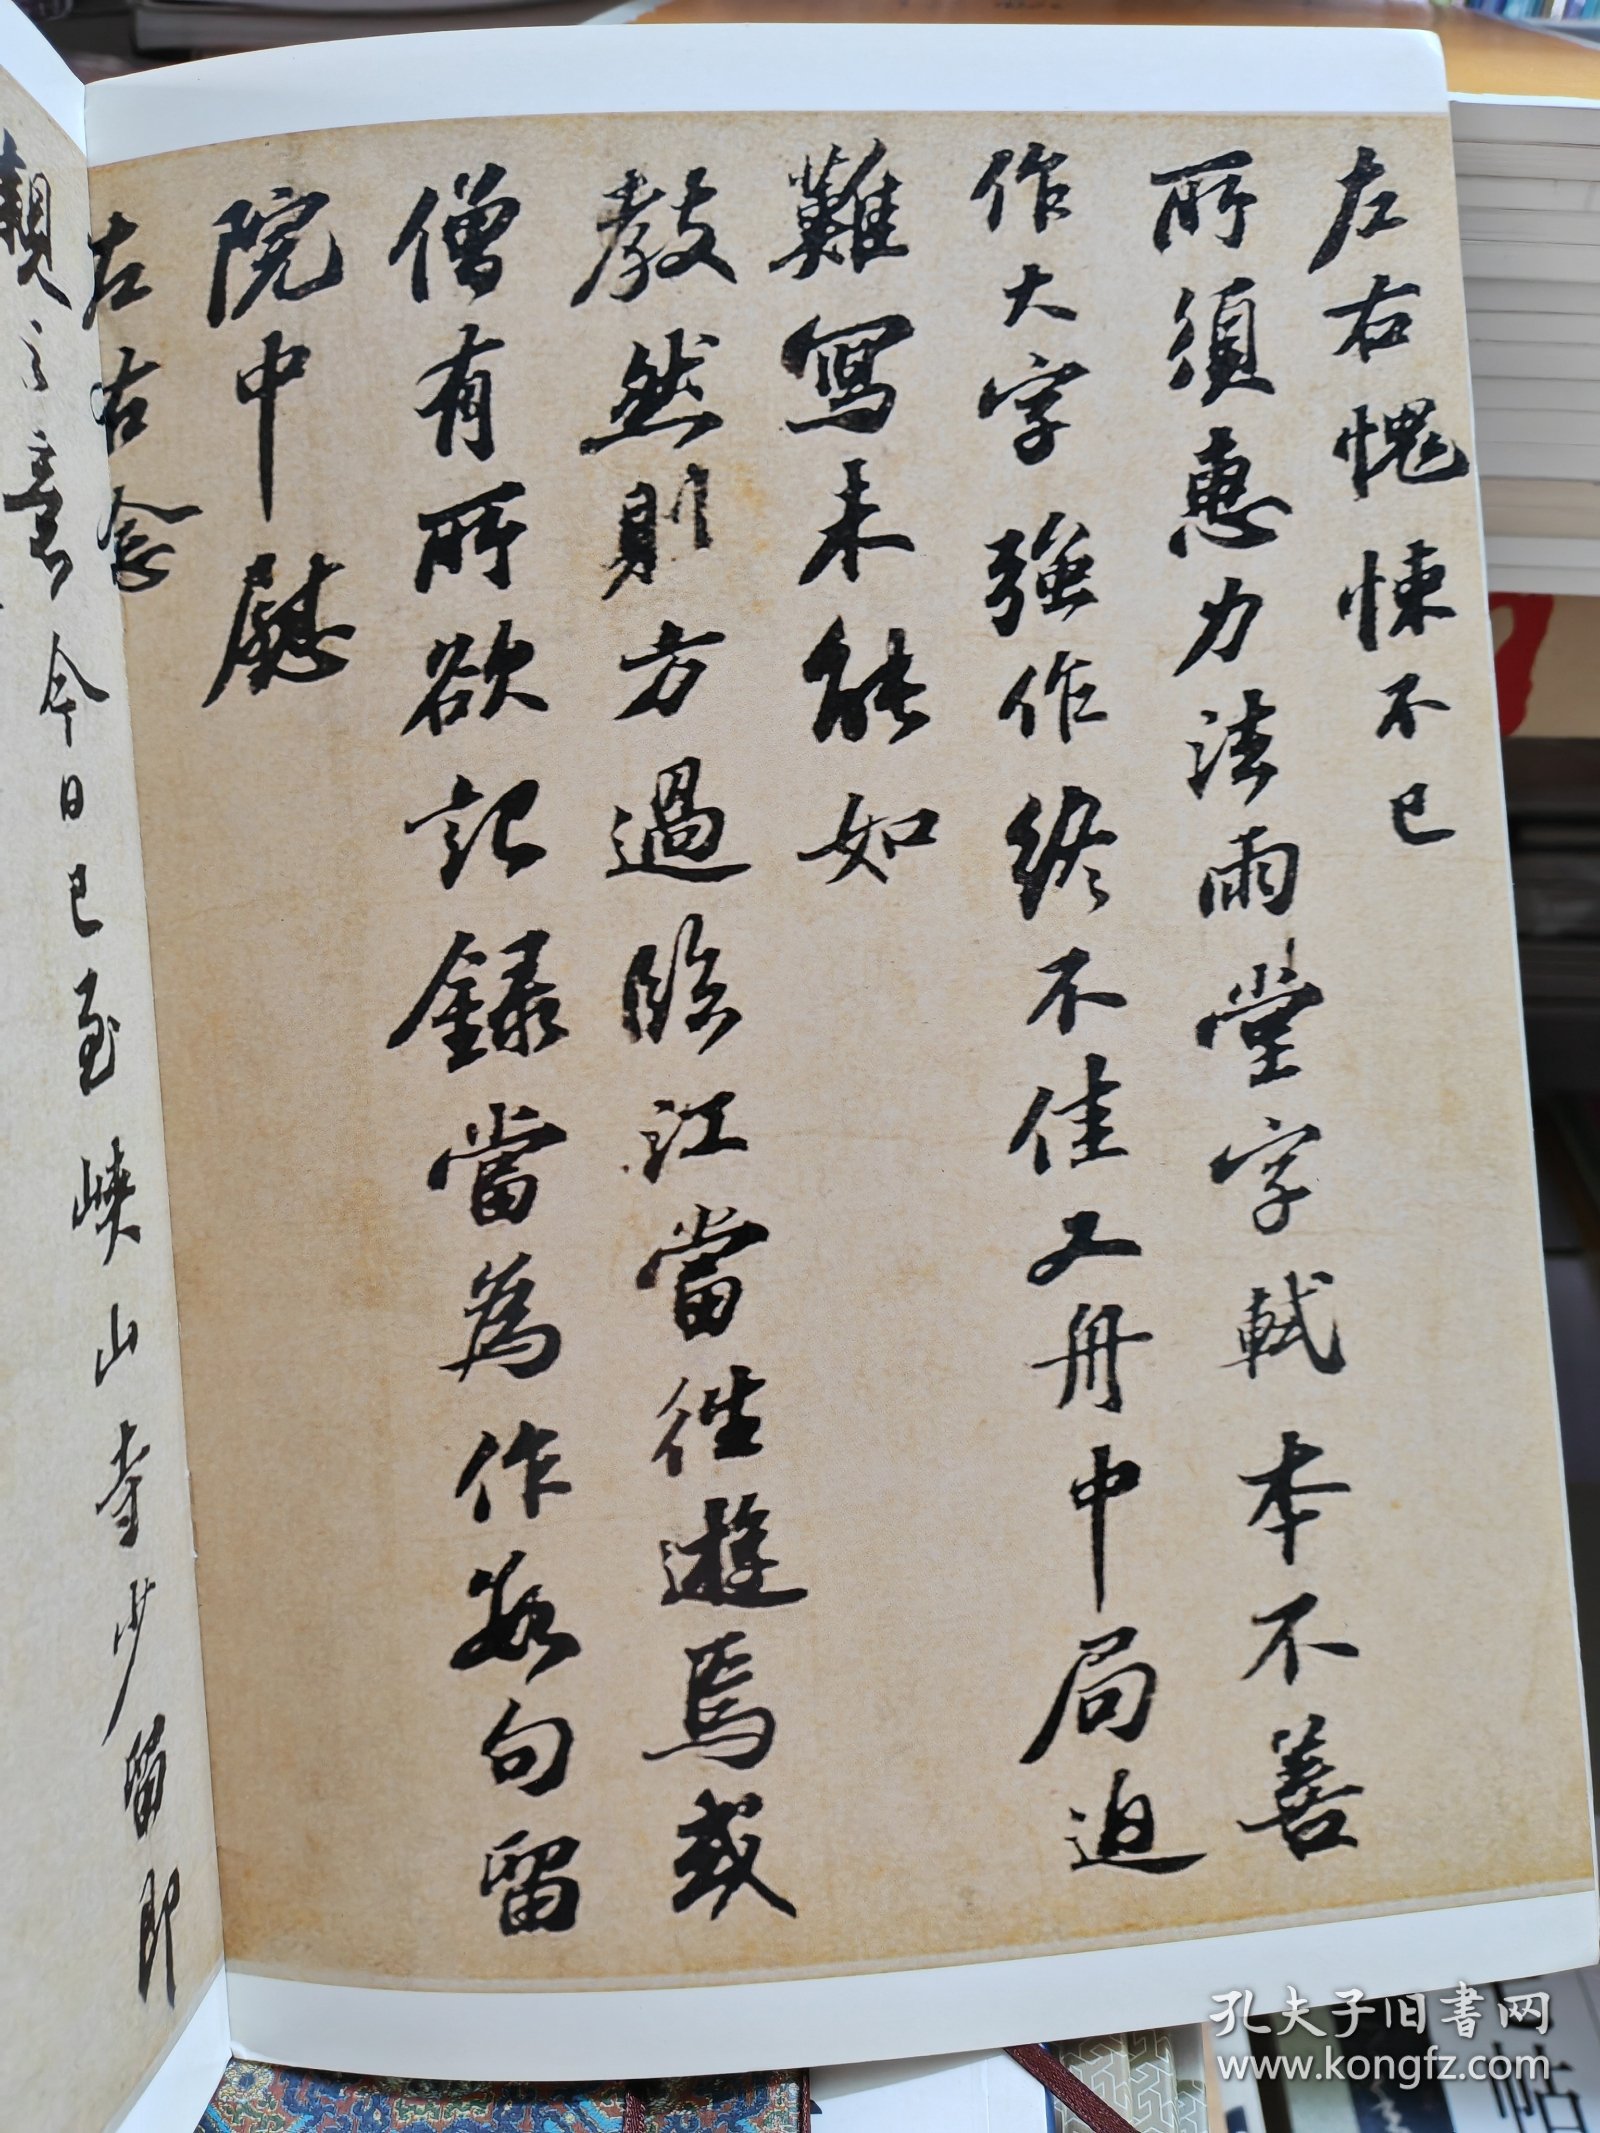 左右愧悚不已
所須惠力法雨堂字軾本不善
作大字強作終不佳又舟中局迫
難寫未能如
教然則方過臨江當往遊焉或
僧有所欲記錄當為作數句留
院中慰
左右念
親之意今日已至峽山寺少留即
孔夫子旧書网
www.kongfz.com
帖